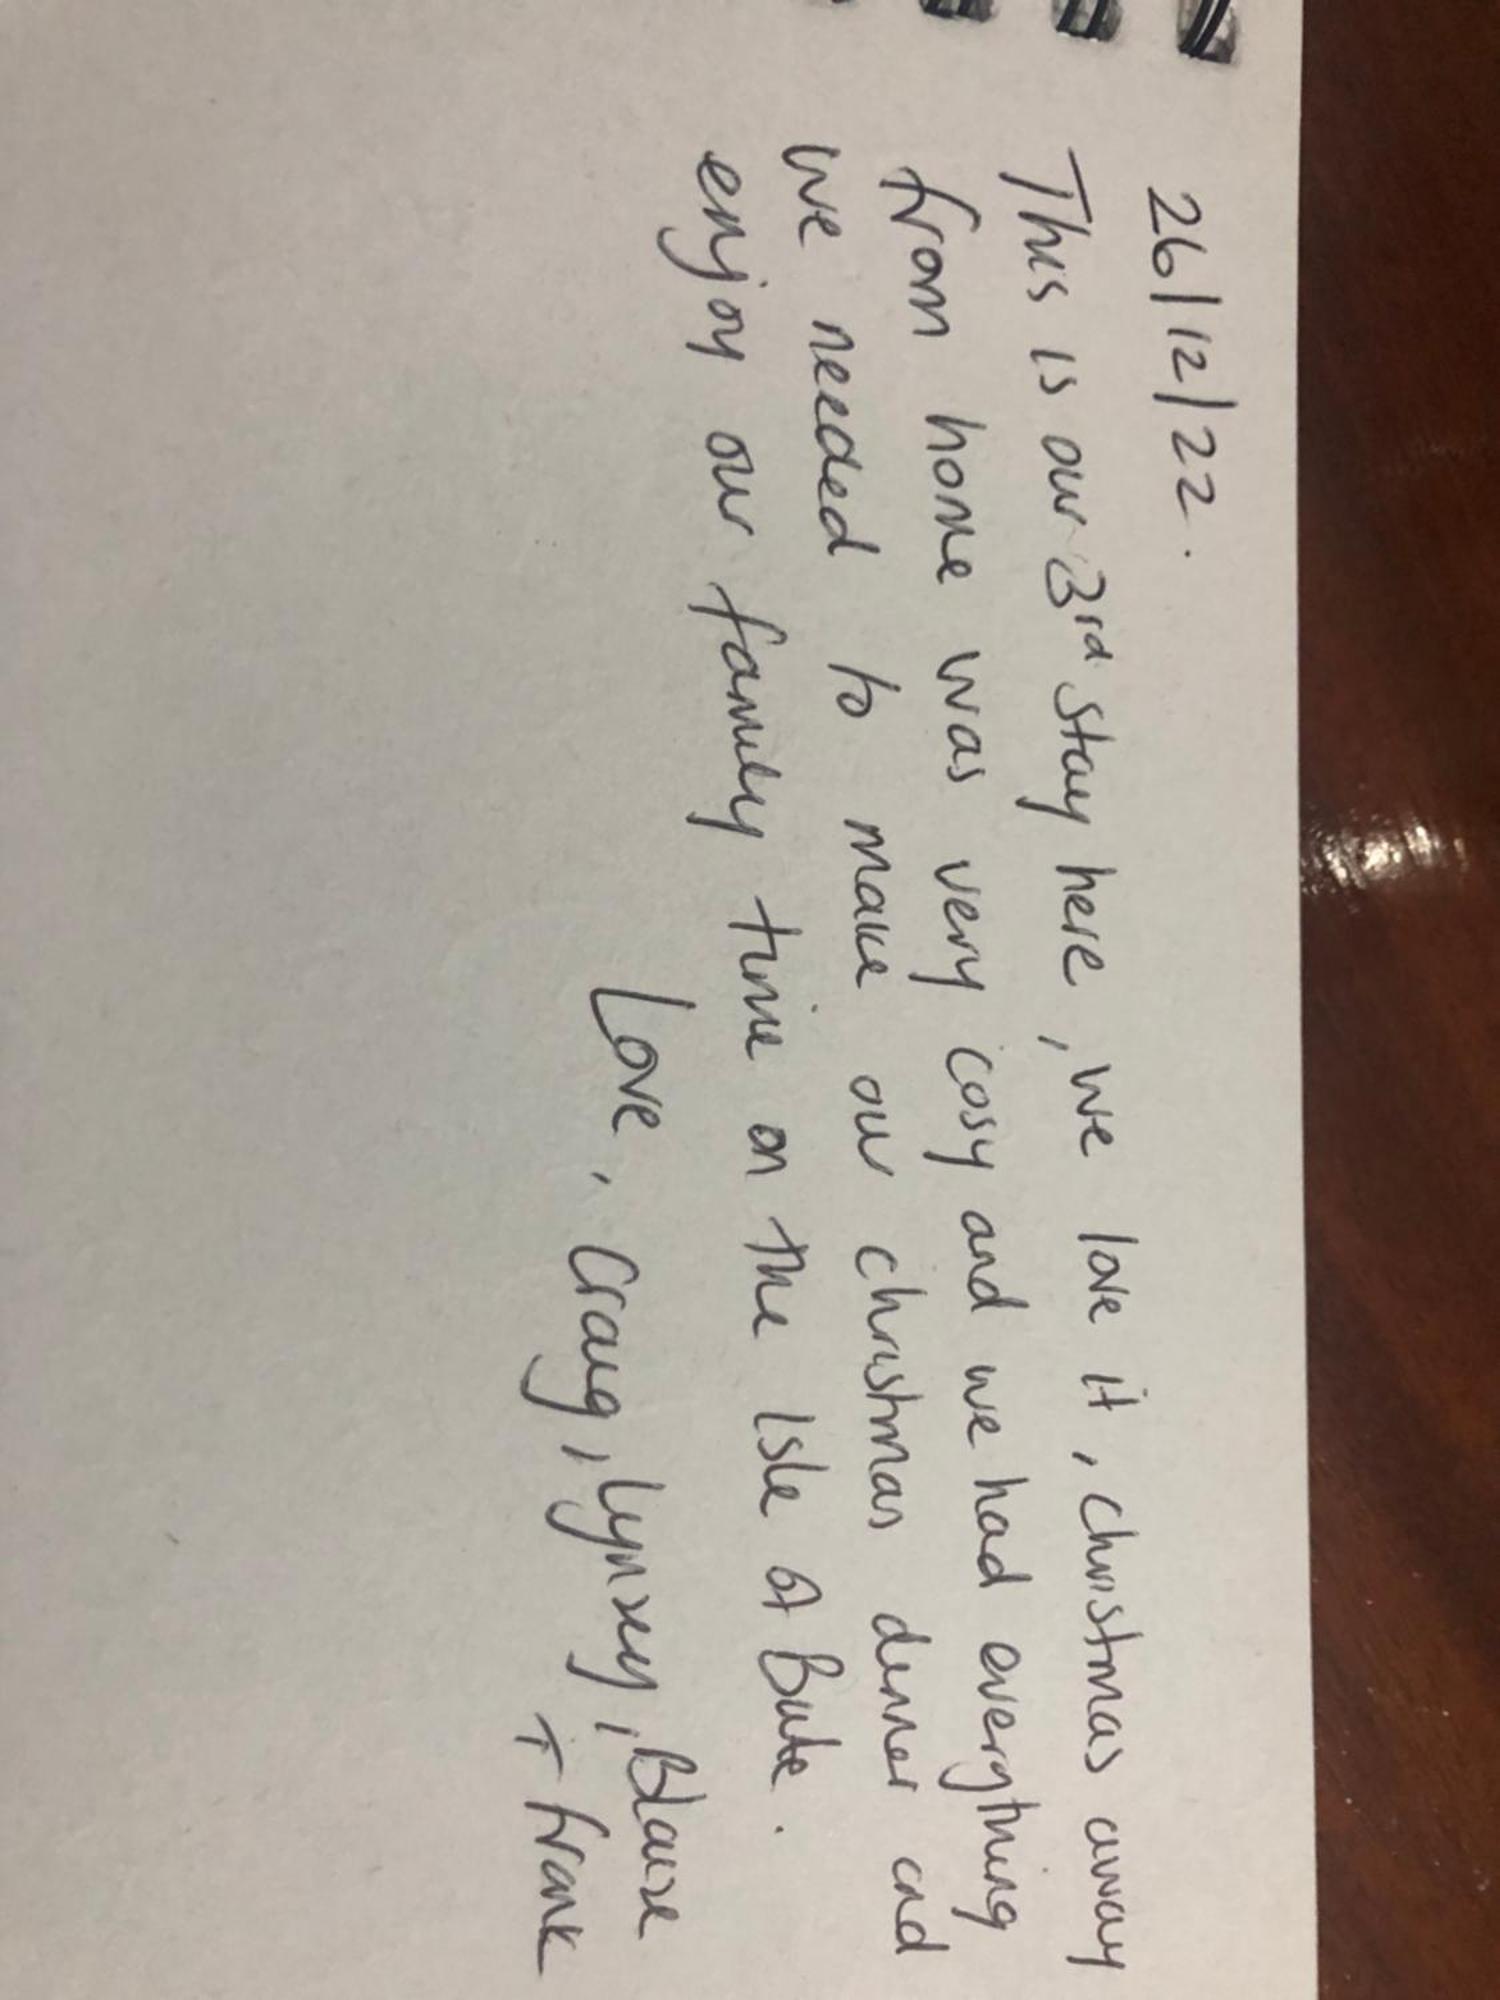 26/12/22.
This is our 3rd stay here, we love it, christmas away
from home was very cosy and we had everything
we needed to make our christmas dinner and
enjoy our family time on the Isle of Bute.
Love, Craig, Lynsey, Blaise
+ Frank